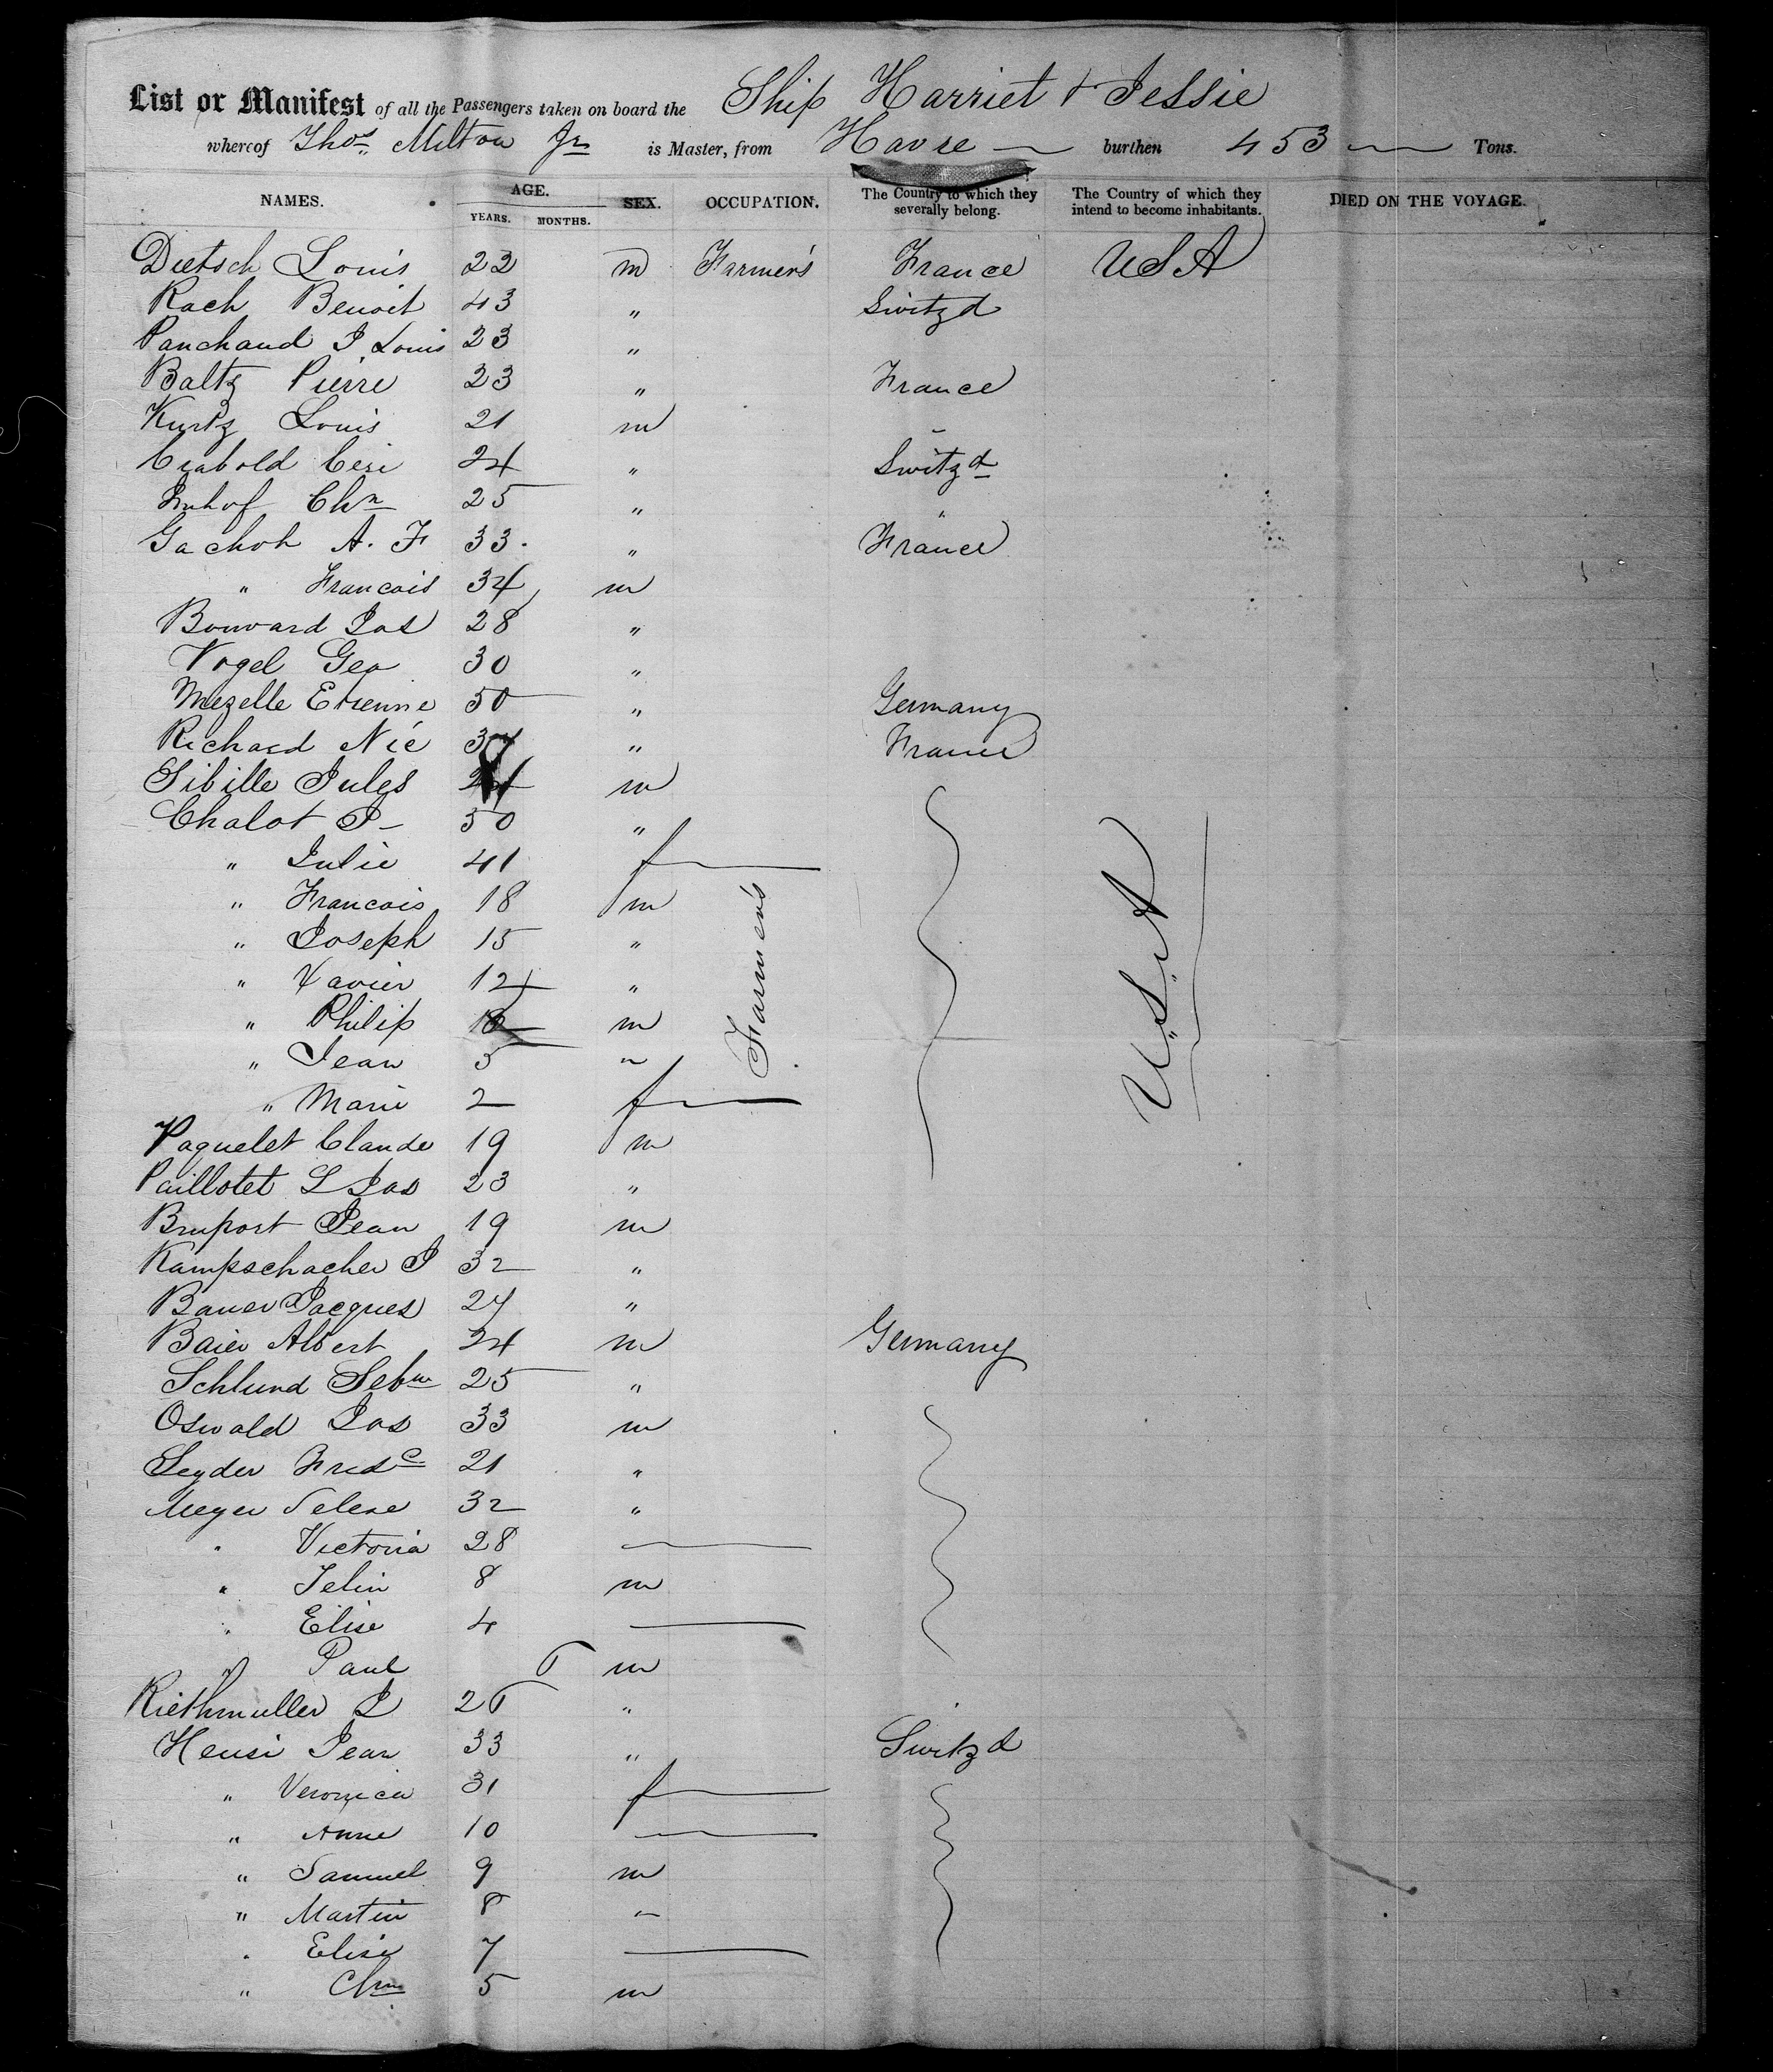 List or Manifest of all the Passengers taken on board the Ship Harriet & Jessie
whereof Thos Milton Jr is Master, from Havre burthen 453 Tons.
NAMES. AGE. SEX. OCCUPATION. The Country to which they severally belong. The Country of which they intend to become inhabitants. DIED ON THE VOYAGE.
YEARS. MONTHS.
Dietsch Louis 22 m Farmer's France USA
Rach Benoit 43 " Switzd
Panchaud J Louis 23 "
Baltz Pierre 23 " France
Kurtz Louis 21 m
Crabold Ceri 24 " Switzd
Imhof Chn 25 " "
Gachoh A. F 33. " France
" Francois 34 m
Bouvard Jos 28 "
Vogel Geo 30 "
Mezelle Etienne 50 " Germany
Richard Nic 37 " France
Sibille Jules m
Chalot J 50 "
" Julie 41 f
" Francois 18 m
" Joseph 15 "
" Xavier 12 "
" Philip m
" Jean 5 "
" Marie 2 f
Farmer's
U.S.A
Paquelet Claude 19 m
Paillotet L Jos 23 "
Bruport Jean 19 m
Kampschacher J 32 "
Bauer Jacques 27 "
Baier Albert 24 m Germany
Schlund Sebn 25 "
Oswald Jos 33 m
Seyder Fredc 21 "
Meyer Selene 32 "
" Victoria 28
" Felin 8 m
" Elise 4
" Paul 6 m
Riethmuller J 26 "
Heusi Jean 33 " Switzd
" Veronica 31 f
" Anne 10
" Samuel 9 m
" Martin 8 "
" Elise 7
" Chn 5 m